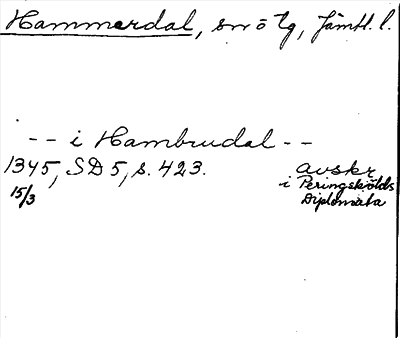 Hammerdal, sn o tg, Jämtl. l.
-- i Hambrudal --
1345, SD 5, s. 423. avskr
15/3 i Peringskölds
Diplomata